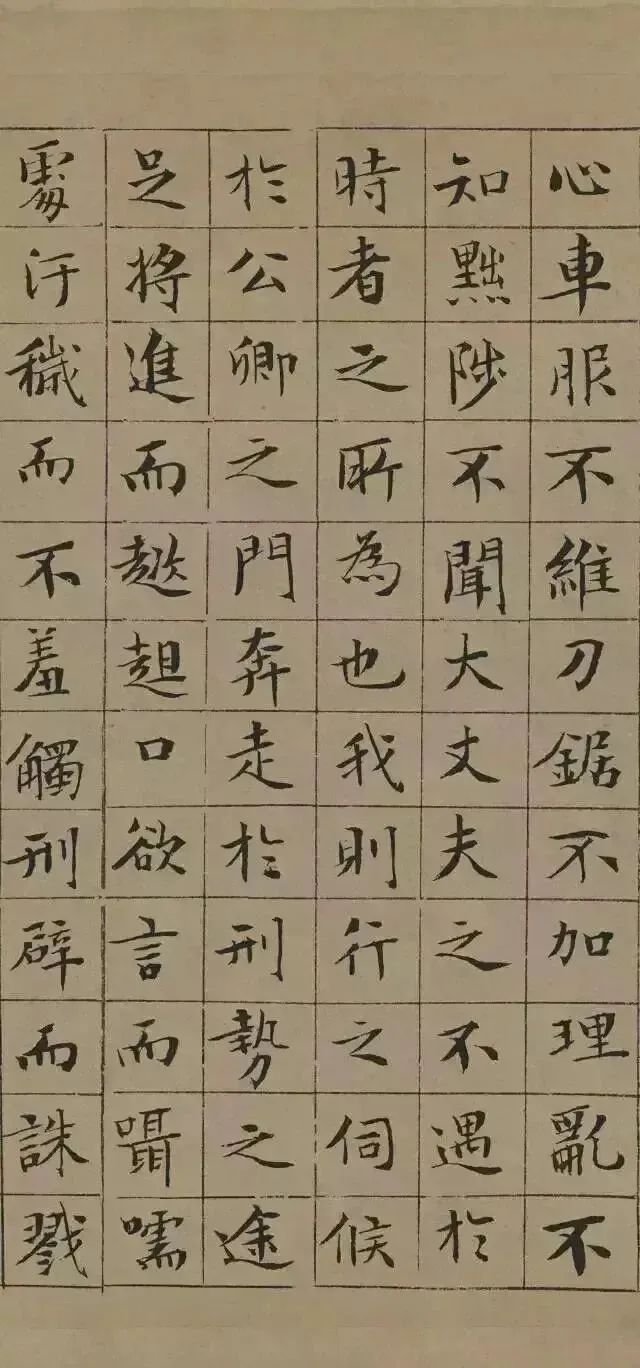 心車服不維刀鋸不加理亂不
知黜陟不聞大丈夫之不遇於
時者之所為也我則行之伺候
於公卿之門奔走於刑勢之途
足將進而趑趄口欲言而囁嚅
處汙穢而不羞觸刑辟而誅戮